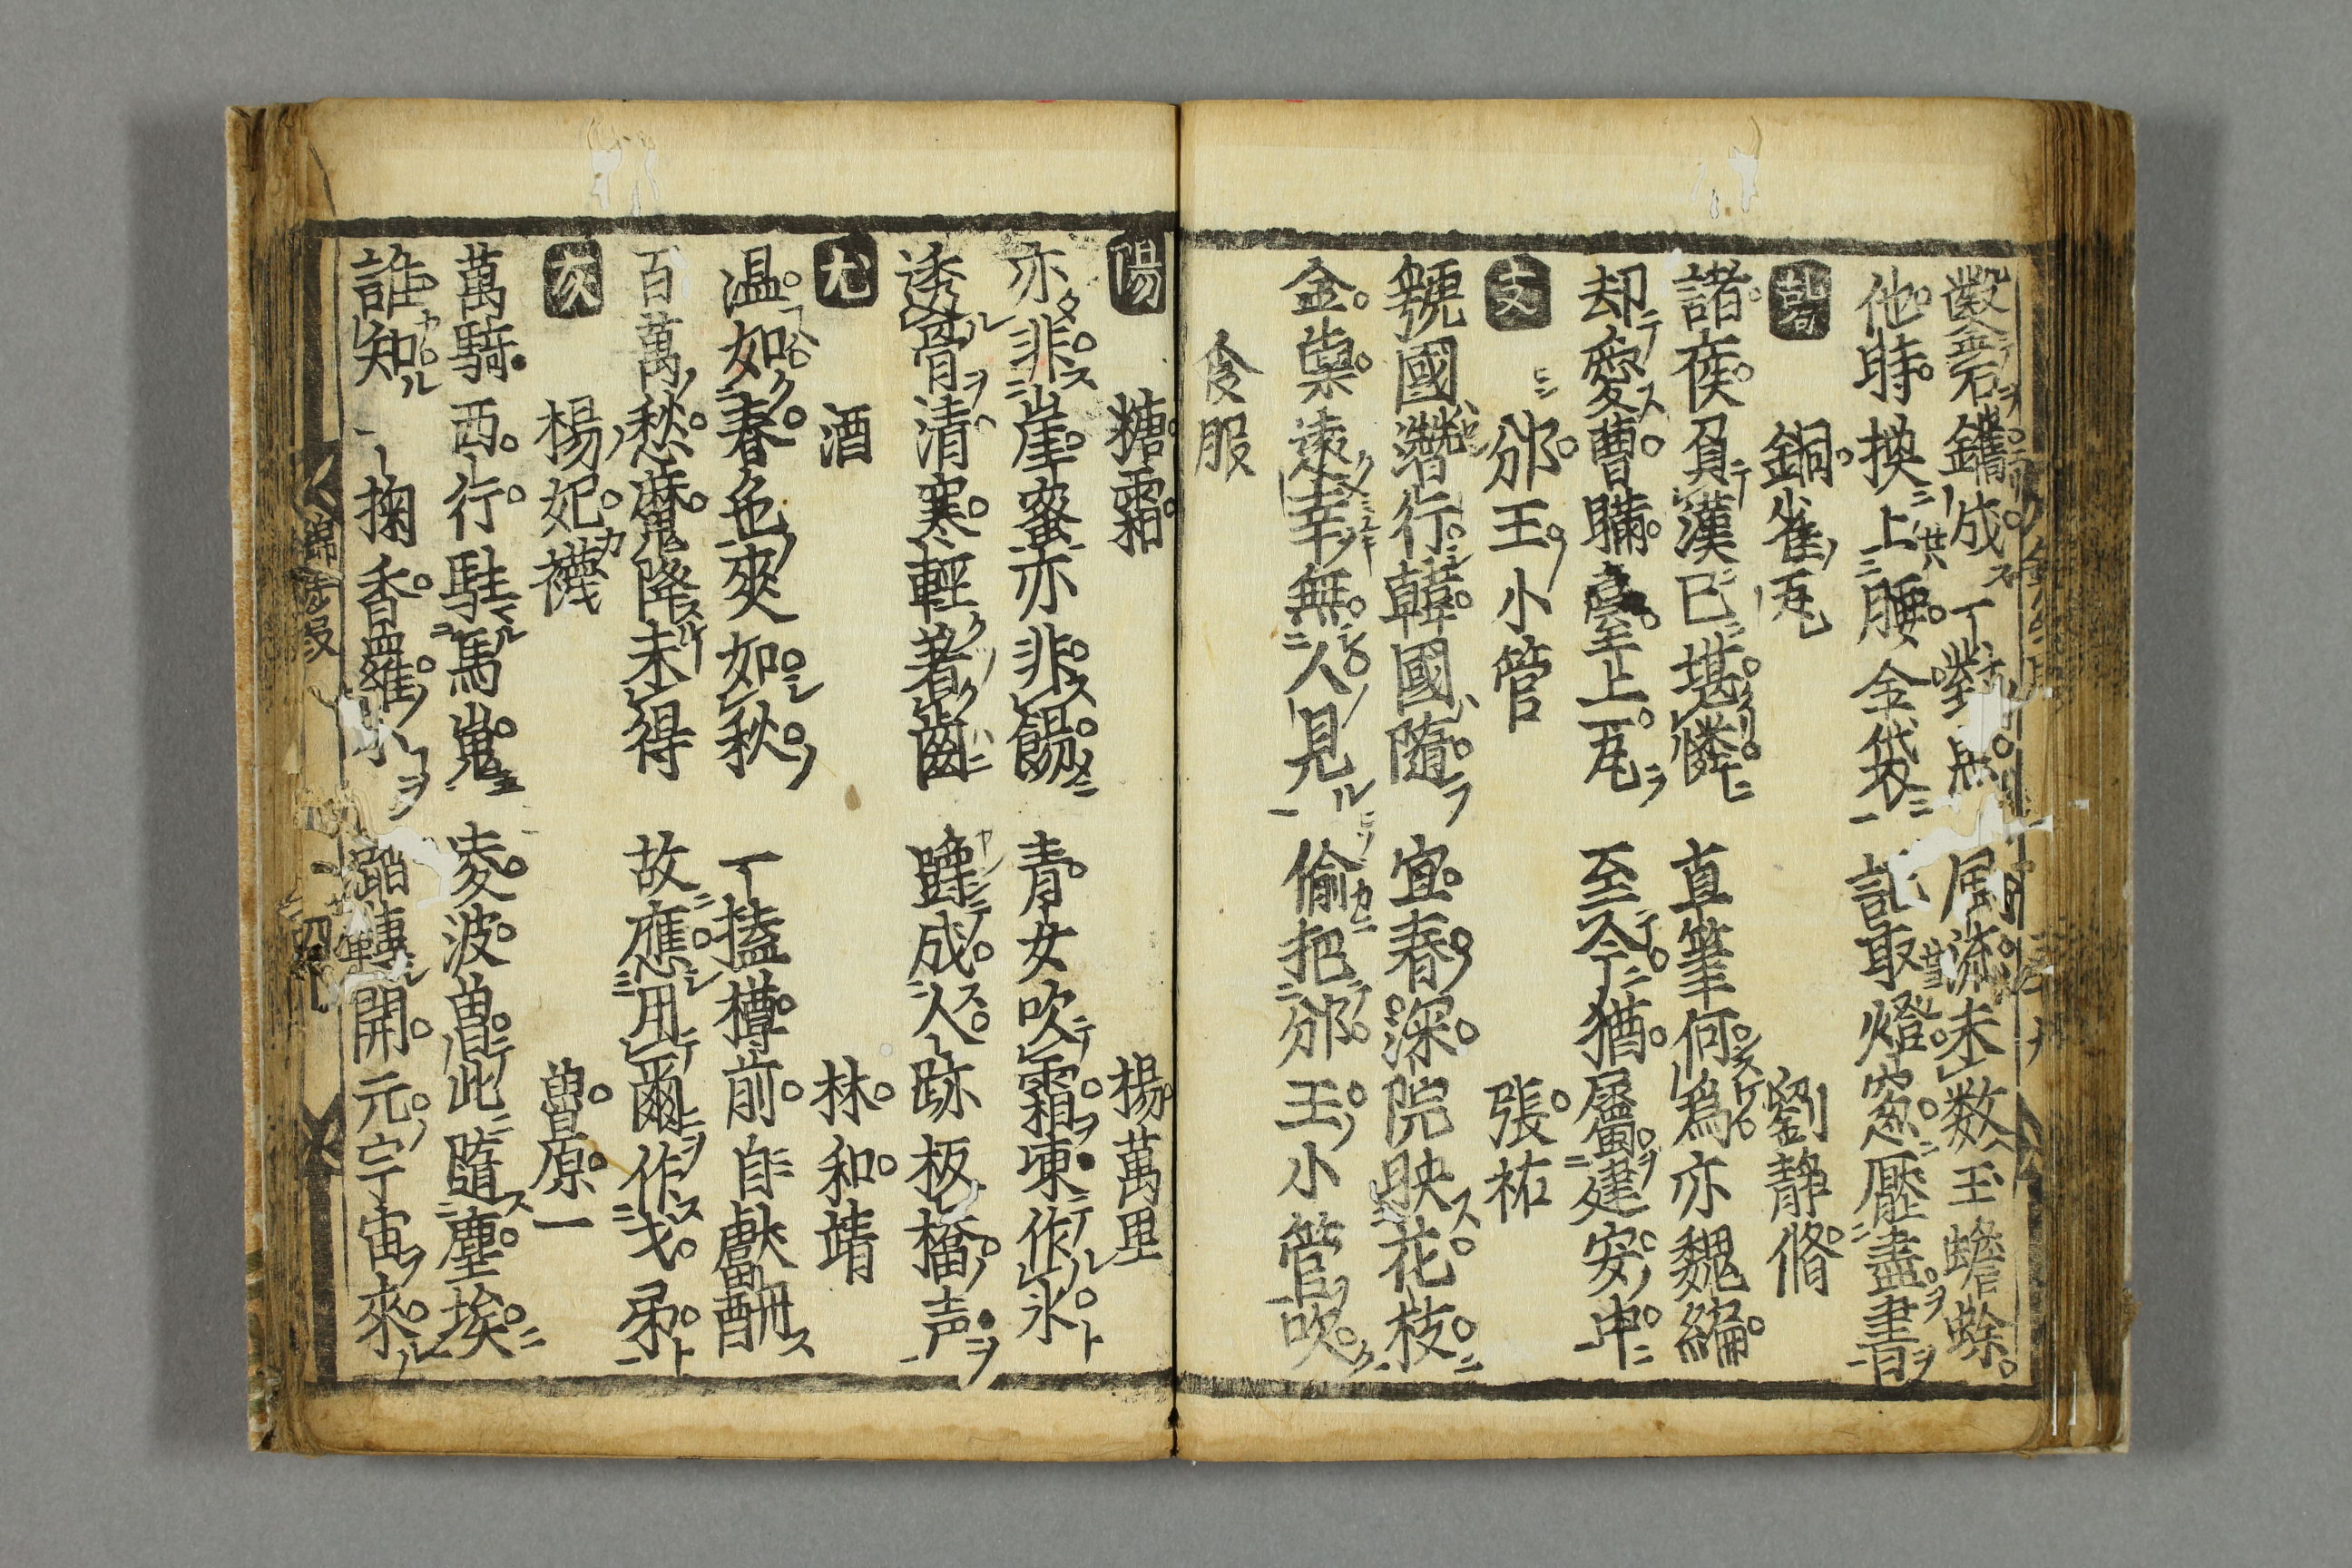 鑿石鑴成丁對 風流未数玉蟾蜍
他時換上腰金袋 記取燈窓壓盡書
銅雀瓦 劉静脩
諸侯負漢已堪憐 直筆何為亦魏編
却愛曹瞞臺上瓦 至今猶屬建安年
支 邠王小管 張祐
虢國潜行韓國隨 宜春深院映花枝
金輿遠幸無人見 偷把邠王小管吹
食服
陽 糖霜 楊萬里
亦非崖蜜亦非餳 青女吹霜凍作氷
透骨清寒輕著齒 踏成人跡板橋声
尤 酒 林和靖
温如春色爽如秋 一榼樽前自獻酬
百萬愁魔降未得 故應用爾作戈矛
灰 楊妃襪 曽原一
萬騎西行駐馬嵬 凌波曽此墮塵埃
誰知一掬香羅 踏轉開元宇宙來